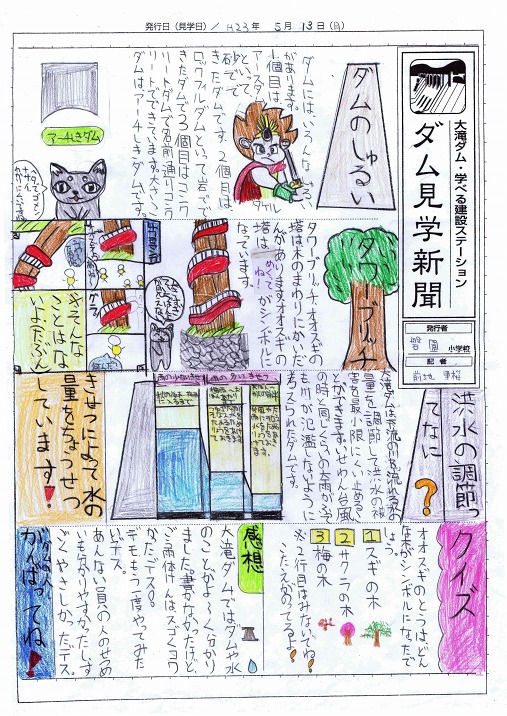 発行日（見学日）／H23年 5月 13日（月）
大滝ダム・学べる建設ステーション
ダム見学新聞
発行者
小学校
記者
ダムのしゅるい
ダムには、いろんなしゅるい
があります。
1個目は、
アースダム
といって、
砂でで
きたダムです。2個目は、
ロックフィルダムといって岩で
きたダムで3個目はコンク
リートダムで名前通りコンク
リートでできています。大たき
ダムはアーチしきダムです。
アーチしきダム
タワーブリッチ
タワーブリッチ、オオスギの
塔は木のまわりにかいだ
んがあります。オオスギの
塔は、
めでてね!
がシンボルに
なっています。
そんな
ことはな
いよたぶん
洪水の調節っ
てなに?
量を調節して洪水の被
害を最小限にくい止めるこ
とができます。いせわん台風
の時と同じくらいの大雨がふって
も川が氾濫しないように
考えられたダムです。
雨の少ないきせつ
雨の多いきせつ
きせつによって水の
量をちょうせつ
しています!
クイズ
オオスギのとうは、どん
な木がシンボルになったで
しょう。
1 スギの木
2 サクラの木
3 梅の木
※2行目はみないでね!
こたえがのってるよ!
感想
大滝ダムではダムや水
のことがよ〜くわかり
ました。書かなかったけど、
ご雨体けんはスゴくコワ
かたデスө。
デモもう一度やってみた
いデス。
あんない員の人のせつめ
いもわかりやすかったしす
ごくやさしかったデス。
がんばってね!